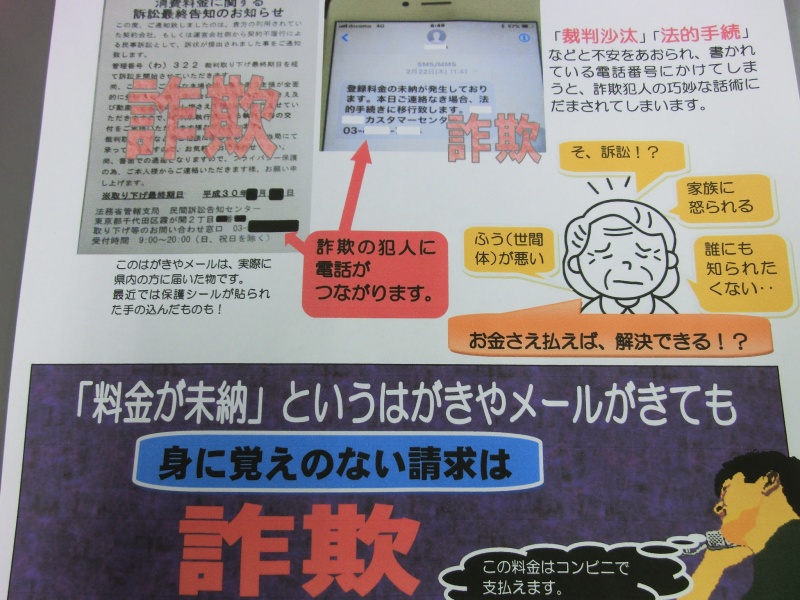 消費料金に関する
訴訟最終告知のお知らせ
この度、ご通知致しましたのは、貴方の利用されていた契約会社、もしくは運営会社側から契約不履行による民事訴訟として、訴状が提出されました事をご通知致します。
管理番号(わ)322 裁判取り下げ最終期日を経て訴訟を開始させていただきます
詐欺
の為、ご本人様からご連絡いただきます様、お願い申し上げます。
※取り下げ最終期日 平成30年 月 日
法務省管轄支局 民間訴訟告知センター
東京都千代田区霞が関2丁目
取り下げ等のお問い合わせ窓口 03-
受付時間 9:00~20:00(日、祝日を除く)
このはがきやメールは、実際に
県内の方に届いた物です。
最近では保護シールが貼られ
た手の込んだものも!
docomo 4G 8:49 57%
SMS/MMS
2月22日(木) 11:41
登録料金の未納が発生しております。本日ご連絡なき場合、法的手続きに移行致します。
カスタマーセンター
03-
詐欺
詐欺の犯人に
電話が
つながります。
「裁判沙汰」「法的手続」
などと不安をあおられ、書かれ
ている電話番号にかけてしま
うと、詐欺犯人の巧妙な話術に
だまされてしまいます。
そ、訴訟!?
家族に
怒られる
ふう(世間
体)が悪い
誰にも
知られた
くない‥
お金さえ払えば、解決できる!?
「料金が未納」というはがきやメールがきても
身に覚えのない請求は
詐欺
この料金はコンビニで
支払えます。